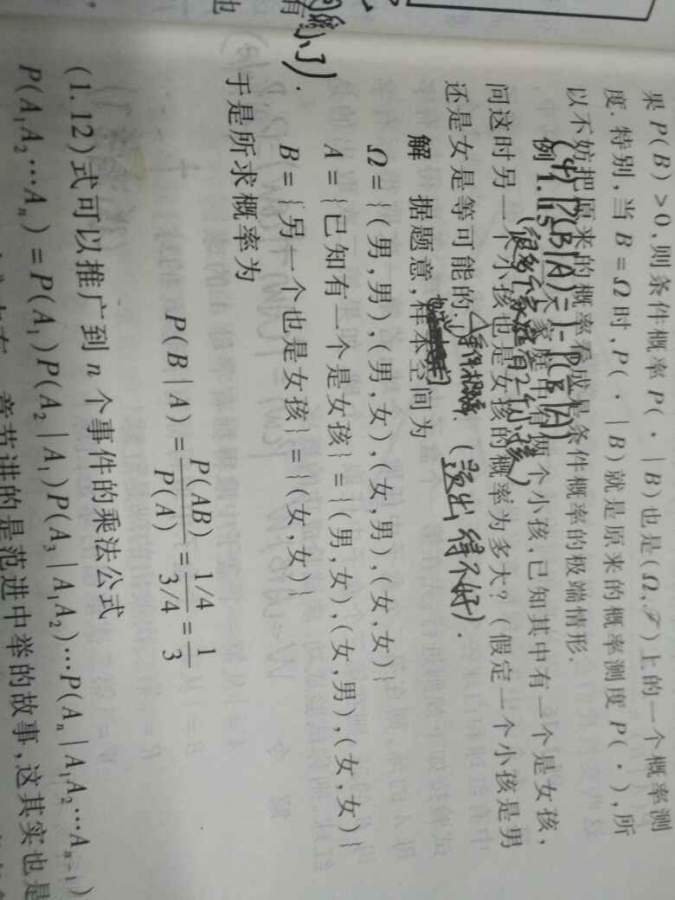 果 P(B)>0,则条件概率 P(·|B)也是(Ω,ℱ)上的一个概率测
度.特别,当 B=Ω时,P(·|B)就是原来的概率测度 P(·),所
以不妨把原来的概率看成是条件概率的极端情形.
(4) P(B|A)=1-P(B̄|A)
例 1.15 家庭中有两个小孩,已知其中有一个是女孩,
(很多个家庭有2个小孩)
问这时另一个小孩也是女孩的概率为多大?(假定一个小孩是男
还是女是等可能的
条件概率.(题出得不好).
解 据题意,样本空间为
Ω={(男,男),(男,女),(女,男),(女,女)}
A={已知有一个是女孩}={(男,女),(女,男),(女,女)}
B={另一个也是女孩}={(女,女)}
于是所求概率为
P(B|A)=P(AB)/P(A)=1/4/3/4=1/3
(1.12)式可以推广到 n 个事件的乘法公式
P(A₁A₂⋯Aₙ)=P(A₁)P(A₂|A₁)P(A₃|A₁A₂)⋯P(Aₙ|A₁A₂⋯Aₙ₋₁)
章节讲的是范进中举的故事,这其实也是
有
小了).
也